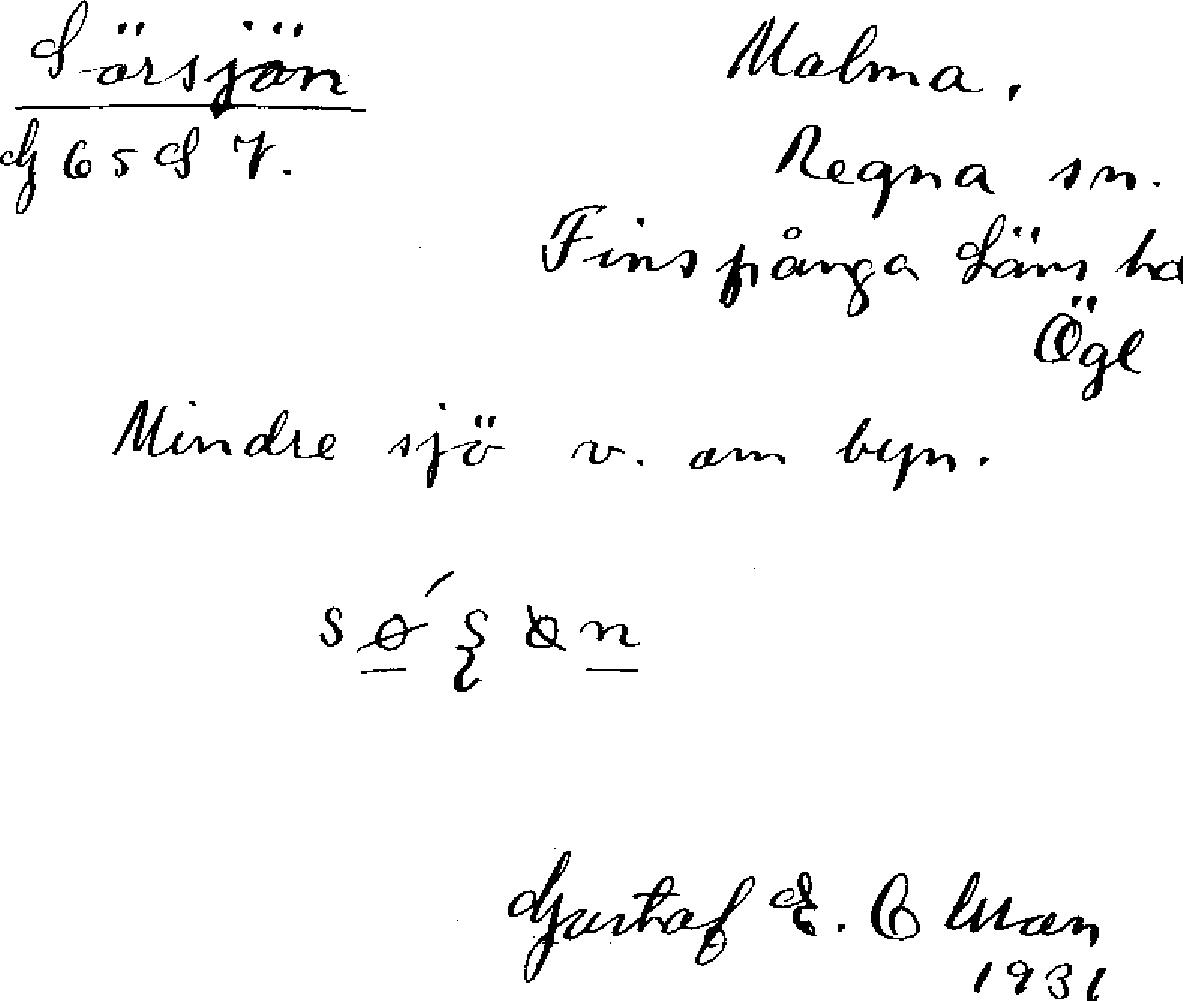 Sörsjön
G 65 S V.
Malma.
Regna sn.
Finspånga Läns hd
Ögl
Mindre sjö v. om byn.
Gustaf E.
1931